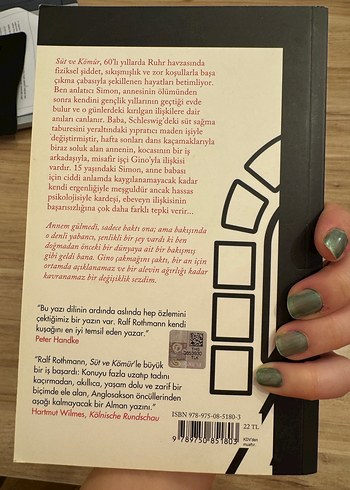 Süt ve Kömür, 60'lı yıllarda Ruhr havzasında
fiziksel şiddet, sıkışmışlık ve zor koşullarla başa
çıkma çabasıyla şekillenen hayatları betimliyor.
Ben anlatıcı Simon, annesinin ölümünden
sonra kendini gençlik yıllarının geçtiği evde
bulur ve o günlerdeki kırılgan ilişkilere dair
anıları canlanır. Baba, Schleswig'deki süt sağma
taburesini yeraltındaki yıpratıcı maden işiyle
değiştirmiştir, hafta sonları dans kaçamaklarıyla
biraz soluk alan annenin, kocasının bir iş
arkadaşıyla, misafir işçi Gino'yla ilişkisi
vardır. 15 yaşındaki Simon, anne babası
için ciddi anlamda kaygılanamayacak kadar
kendi ergenliğiyle meşguldür ancak hassas
psikolojisiyle kardeşi, ebeveyn ilişkisinin
başarısızlığına çok daha farklı tepki verir...
Annem gülmedi, sadece baktı ona; ama bakışında
o denli yabancı, şenlikli bir şey vardı ki ben
doğmadan önceki bir dünyaya ait bir bakışmış
gibi geldi bana. Gino çakmağını şaktı, bir an için
ortamda açıklanamaz ve bir alevin ağırlığı kadar
kavranamaz bir değişiklik sezdim.
"Bu yazı dilinin ardında aslında hep özlemini
çektiğimiz bir yazın var. Ralf Rothmann kendi
kuşağını en iyi temsil eden yazar."
Peter Handke
"Ralf Rothmann, Süt ve Kömür'le büyük
bir iş başardı: Konuyu fazla uzatıp tadını
kaçırmadan, akıllıca, yaşam dolu ve zarif bir
biçimde ele alan, Anglosakson öncüllerinden
aşağı kalmayacak bir Alman yazını."
Hartmut Wilmes, Kölnische Rundschau
ISBN 978-975-08-5180-3
22 TL
9 789750 851803
KDV'den
muaftır.